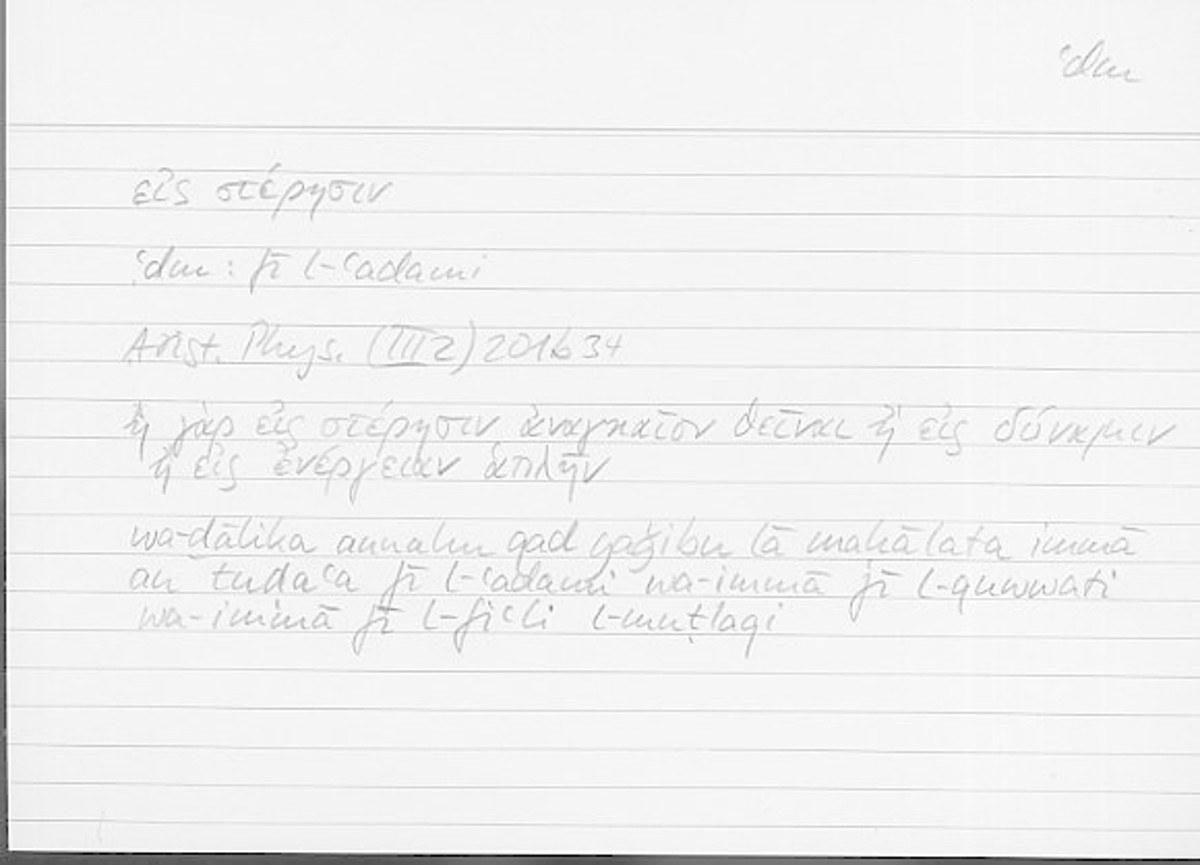 ʿdm
εἰς στέρησιν
ʿdm : fī l-ʿadami
Arist. Phys. (III 2) 201b34
ἢ γὰρ εἰς στέρησιν ἀναγκαῖον θεῖναι ἢ εἰς δύναμιν
ἢ εἰς ἐνέργειαν ἁπλῆν
wa-ḏālika annahu qad yaǧibu lā maḥālata immā
an tūḍaʿa fī l-ʿadami wa-immā fī l-quwwati
wa-immā fī l-fiʿli l-muṭlaqi